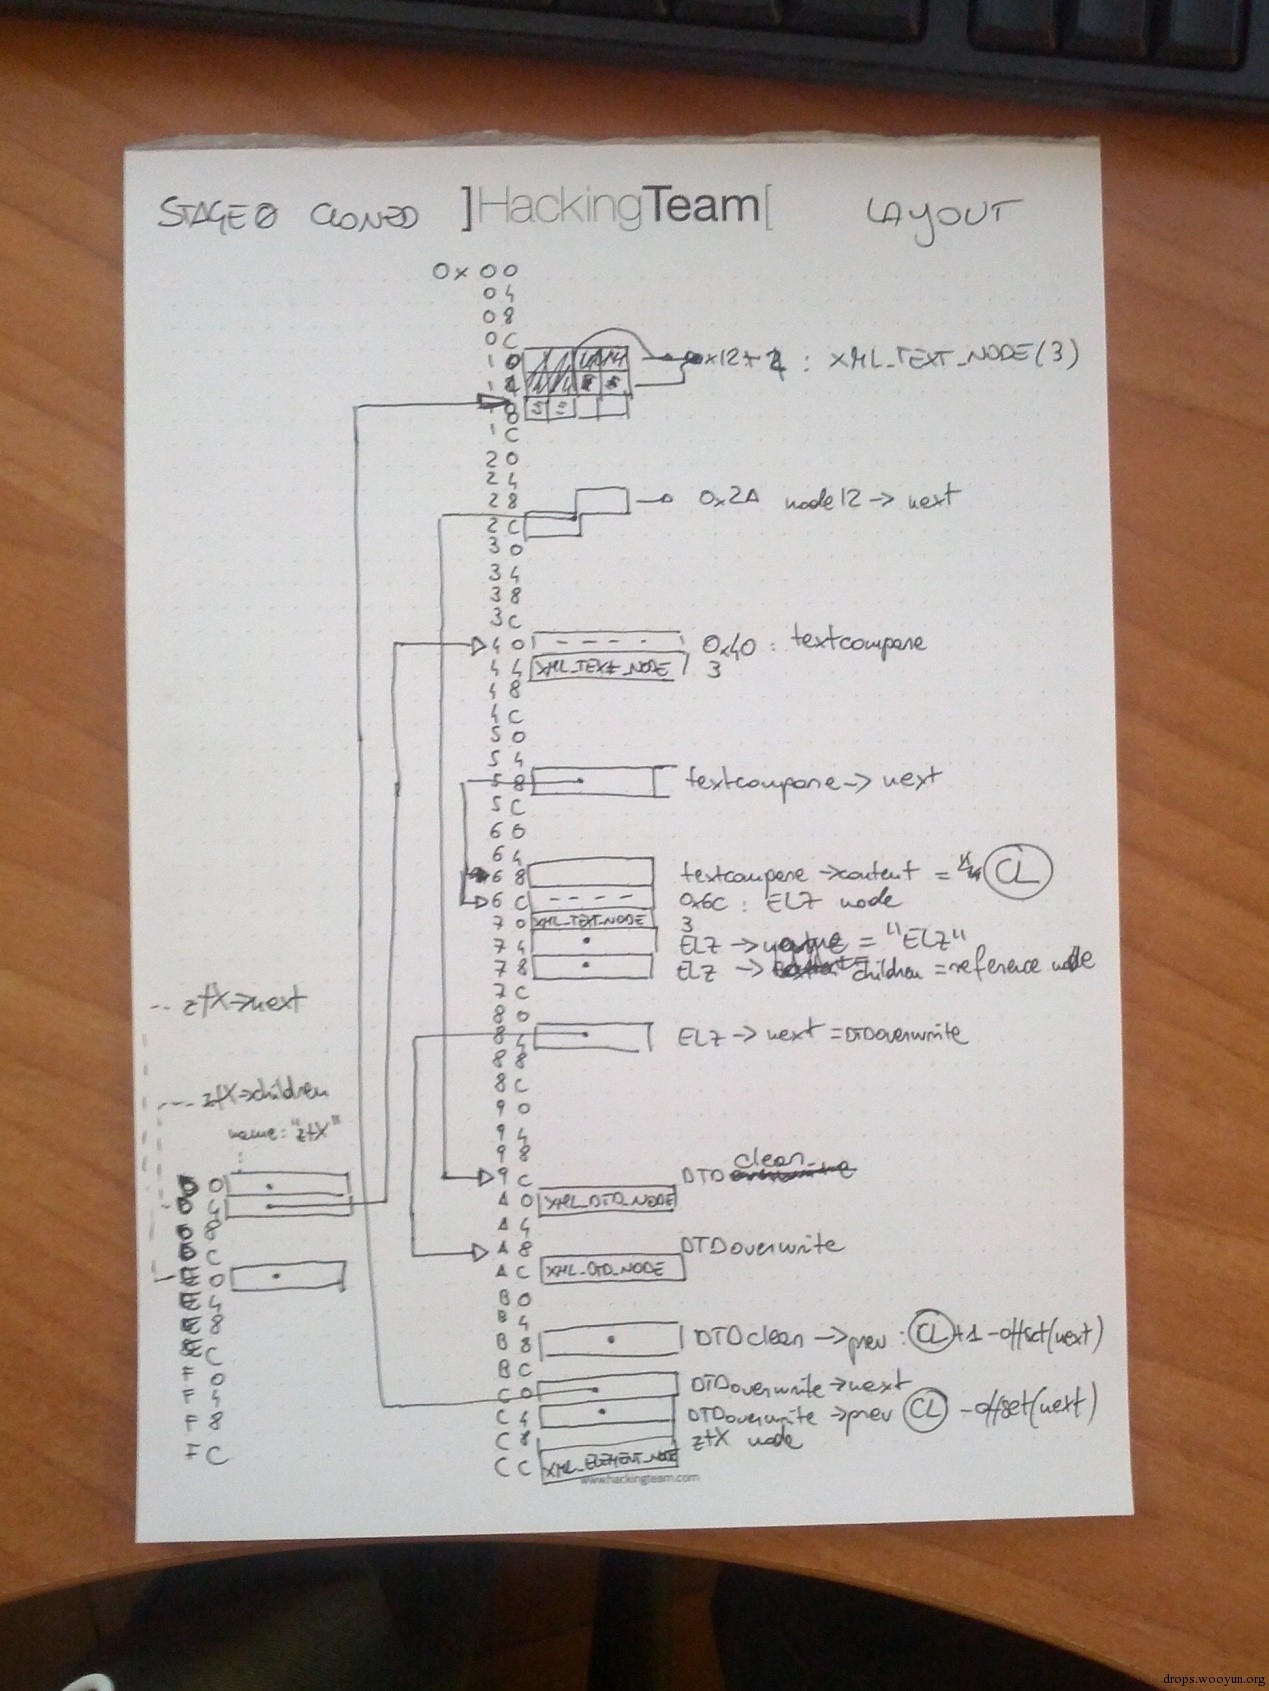 STAGE0 CLONED ]HackingTeam[ LAYOUT
0x 00
04
08
0C
10 0x12+2 : XML_TEXT_NODE(3)
14
18
1C
20
24
28 0x2A node12 -> next
2C
30
34
38
3C
40 0x40 : textcompare
44 XML_TEXT_NODE 3
48
4C
50
54
58 textcompare -> next
5C
60
64
68 textcompare -> content = CL
6C 0x6C : ELZ node
70 XML_TEXT_NODE 3
74 ELZ -> = "ELZ"
78 ELZ -> children = reference node
7C
80
84 ELZ -> next = DTDoverwrite
88
8C
90
94
98
9C DTD clean
A0 XML_DTD_NODE
A4
A8 DTDoverwrite
AC XML_DTD_NODE
B0
B4
B8 DTDclean -> prev : CL +1 -offset(next)
BC
C0 DTDoverwrite -> next
C4 DTDoverwrite -> prev CL -offset(next)
C8 ztX node
CC XML_ELEMENT_NODE
www.hackingteam.com
ztX->next
ztX->children
name: "ztX"
D0
D4
D8
DC
E0
E4
E8
EC
F0
F4
F8
FC
drops.wooyun.org